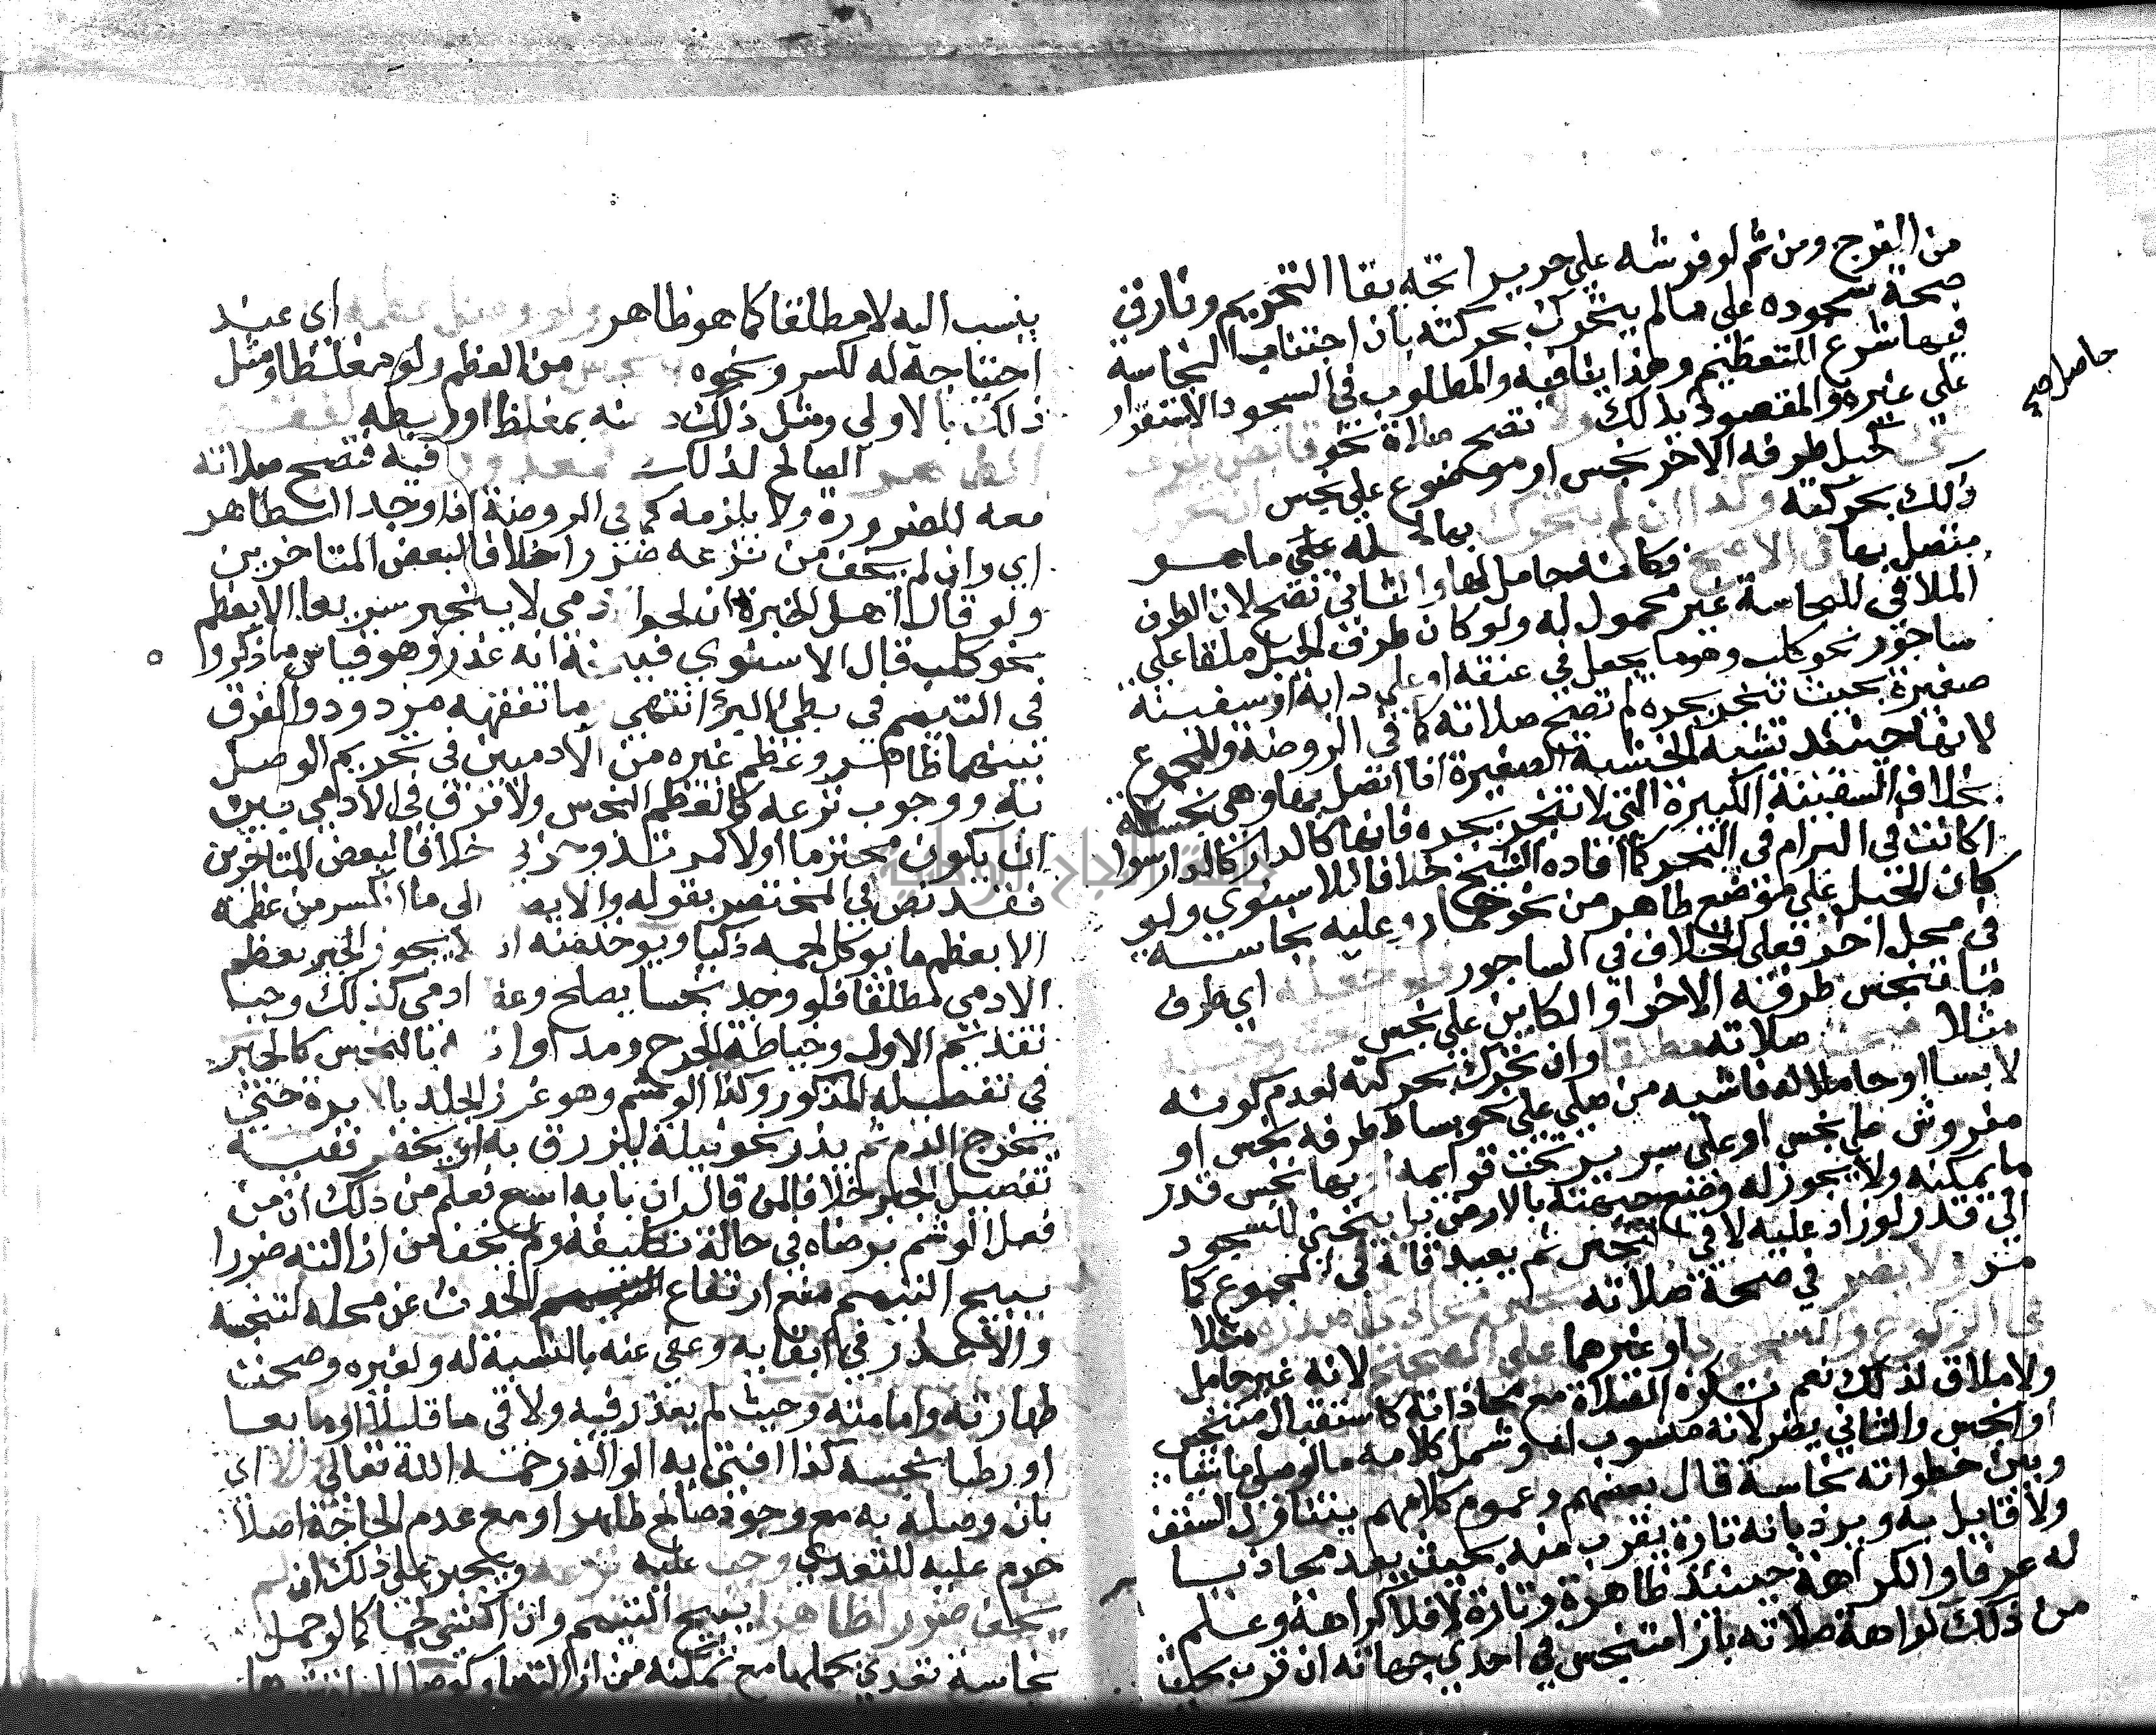 من الفرج ومن ثم لو فرشه على حرير اتجه بقا التحريم وفارق
صحة سجوده على ما لم يتحرك بحركته بان اجتناب النجاسة
فيها شرع للتعظيم وهذا ينافيه والمطلوب في السجود الاستقرار
على غيره والمقصود بذلك ولا تصح صلاة نحو قابض طرف
حبل طرفه الاخر نجس او موضوع على نجس ان تحرك
ذلك بحركته وكذا ان لم يتحرك بها لحمله على ما هو
متصل بها في الاصح فكانه حامل لها والثاني تصح لان الطرف
الملاقي للنجاسة غير محمول له ولو كان طرف الحبل ملقا على
ساجور نحو كلب وهو ما يجعل في عنقه او على دابة او سفينة
صغيرة بحيث تنجر بجره لم تصح صلاته كما في الروضة والمجموع
لانها حينئذ تشبه الخشبة الصغيرة اذا اتصل بها وهي نجسة
بخلاف السفينة الكبيرة التي لا تنجر بجره فانها كالدار سوا
اكانت في البر ام في البحر كما افاده الشيخ خلافا للاسنوي ولو
كان الحبل على موضع طاهر من نحو حمار وعليه نجاسة
في محل اخر فعلى الخلاف في الساجور ولو جعله اي طرف
ما تنجس طرفه الاخر او الكاين على نجس تحت رجله
مثلا صحت صلاته مطلقا وان تحرك بحركته لعدم كونه
لابسا او حاملا له فاشبه من صلى على نحو بساط طرفه نجس او
مفروش على نجس او على سرير تحت قوائمه او بها نجس قدر
ما يمكنه ولا يجوز له وضع جبهته بالارض بل ينحني للسجود
الى قدر لو زاد عليه لاقى النجس ثم يعيد قاله في المجموع كما
مر ولا يضر في صحة صلاته نجس يحاذي صدره مثلا
في الركوع والسجود او غيرهما على الصحيح لانه غير حامل
ولا ملاق لذلك نعم تكره الصلاة مع محاذاته كاستقبال متنجس
او نجس والثاني يضر لانه منسوب له وشمل كلامه ما لو صلى ماشيا
وبين خطواته نجاسة قال بعضهم وعموم كلامهم يتناول السقف
ولا قايل به ويرد بانه تارة يقرب منه بحيث يعد محاذيا
له عرفا والكراهة حينئذ ظاهرة وتارة لا فلا كراهة وعلم
من ذلك كراهة صلاته بازا متنجس في احدى جهاته ان قرب بحيث
ينسب اليه لا مطلقا كما هو ظاهر ولو وصل عظمه اي عند
احتياجه له لكسر ونحوه بنجس من العظم ولو مغلظا ومثل
ذلك بالاولى ومثل ذلك دهنه بمغلظ او ربطه به لفقد
الطاهر الصالح لذلك فمعذور فيه فتصح صلاته
معه للضرورة ولا يلزمه كما في الروضة اذا وجد الطاهر
اي وان لم يخف من نزعه ضررا خلافا لبعض المتاخرين
ولو قال اهل الخبرة ان لحم الادمي لا ينجبر سريعا الا بعظم
نحو كلب قال الاسنوي فيتجه انه عذر وهو قياس ما ذكروا
في التيمم في بطئ البرء انتهى وما تفقهه مردود والفرق
بينهما ظاهر وعظم غيره من الادميين في تحريم الوصل
به ووجوب نزعه كالعظم النجس ولا فرق في الادمي بين
ان يكون محترما اولا كمرتد وحربي خلافا لبعض المتاخرين
فقد نص في المختصر بقوله ولا يصل الى ما انكسر من عظمه
الا بعظم ما يوكل لحمه ذكيا ويوخذ منه انه لا يجوز الجبر بعظم
الادمي مطلقا فلو وجد نجسا يصلح وعظم ادمي كذلك وجب
تقديم الاول وخياطة الجرح ومداواته بالنجس كالجبر
في تفصيله المذكور وكذا الوشم وهو غرز الجلد بالابرة حتى
يخرج الدم ثم يذر نحو نيلة ليزرق به او يخضر ففيه
تفصيل الجبر خلافا لمن قال ان بابه اسع فعلم من ذلك ان من
فعل الوشم برضاه في حالة تكليفه ولم يخف من ازالته ضررا
يبيح التيمم منع ارتفاع الحدث عن محله لتنجسه
والا عذر في ابقايه وعفي عنه بالنسبة له ولغيره وصحت
طهارته وامامته وحيث لم يعذر فيه ولاقى ما قليلا او مايعا
او رطبا نجسه كذا افتى به الوالد رحمه الله تعالى والا اي
بان وصله به مع وجود صالح طاهر او مع عدم الحاجة اصلا
حرم عليه للتعدي وجب عليه نزعه ويجبر على ذلك ان لم
يخف ضررا ظاهرا يبيح التيمم وان اكتسى لحما كما لو حمل
نجاسة تعدى بحملها مع تمكنه من ازالتها